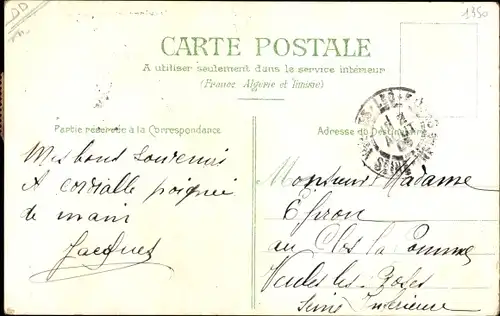 DD
1350
CARTE POSTALE
A utiliser seulement dans le service intérieur
(France, Algérie et Tunisie)
Partie réservée à la Correspondance
Adresse du Destinataire
Mes bons souvenirs
A cordialle poignée
de main
Jacques
Monsieur Madame
au Clos la Pomme
Veules les Roses
Seine Inférieure